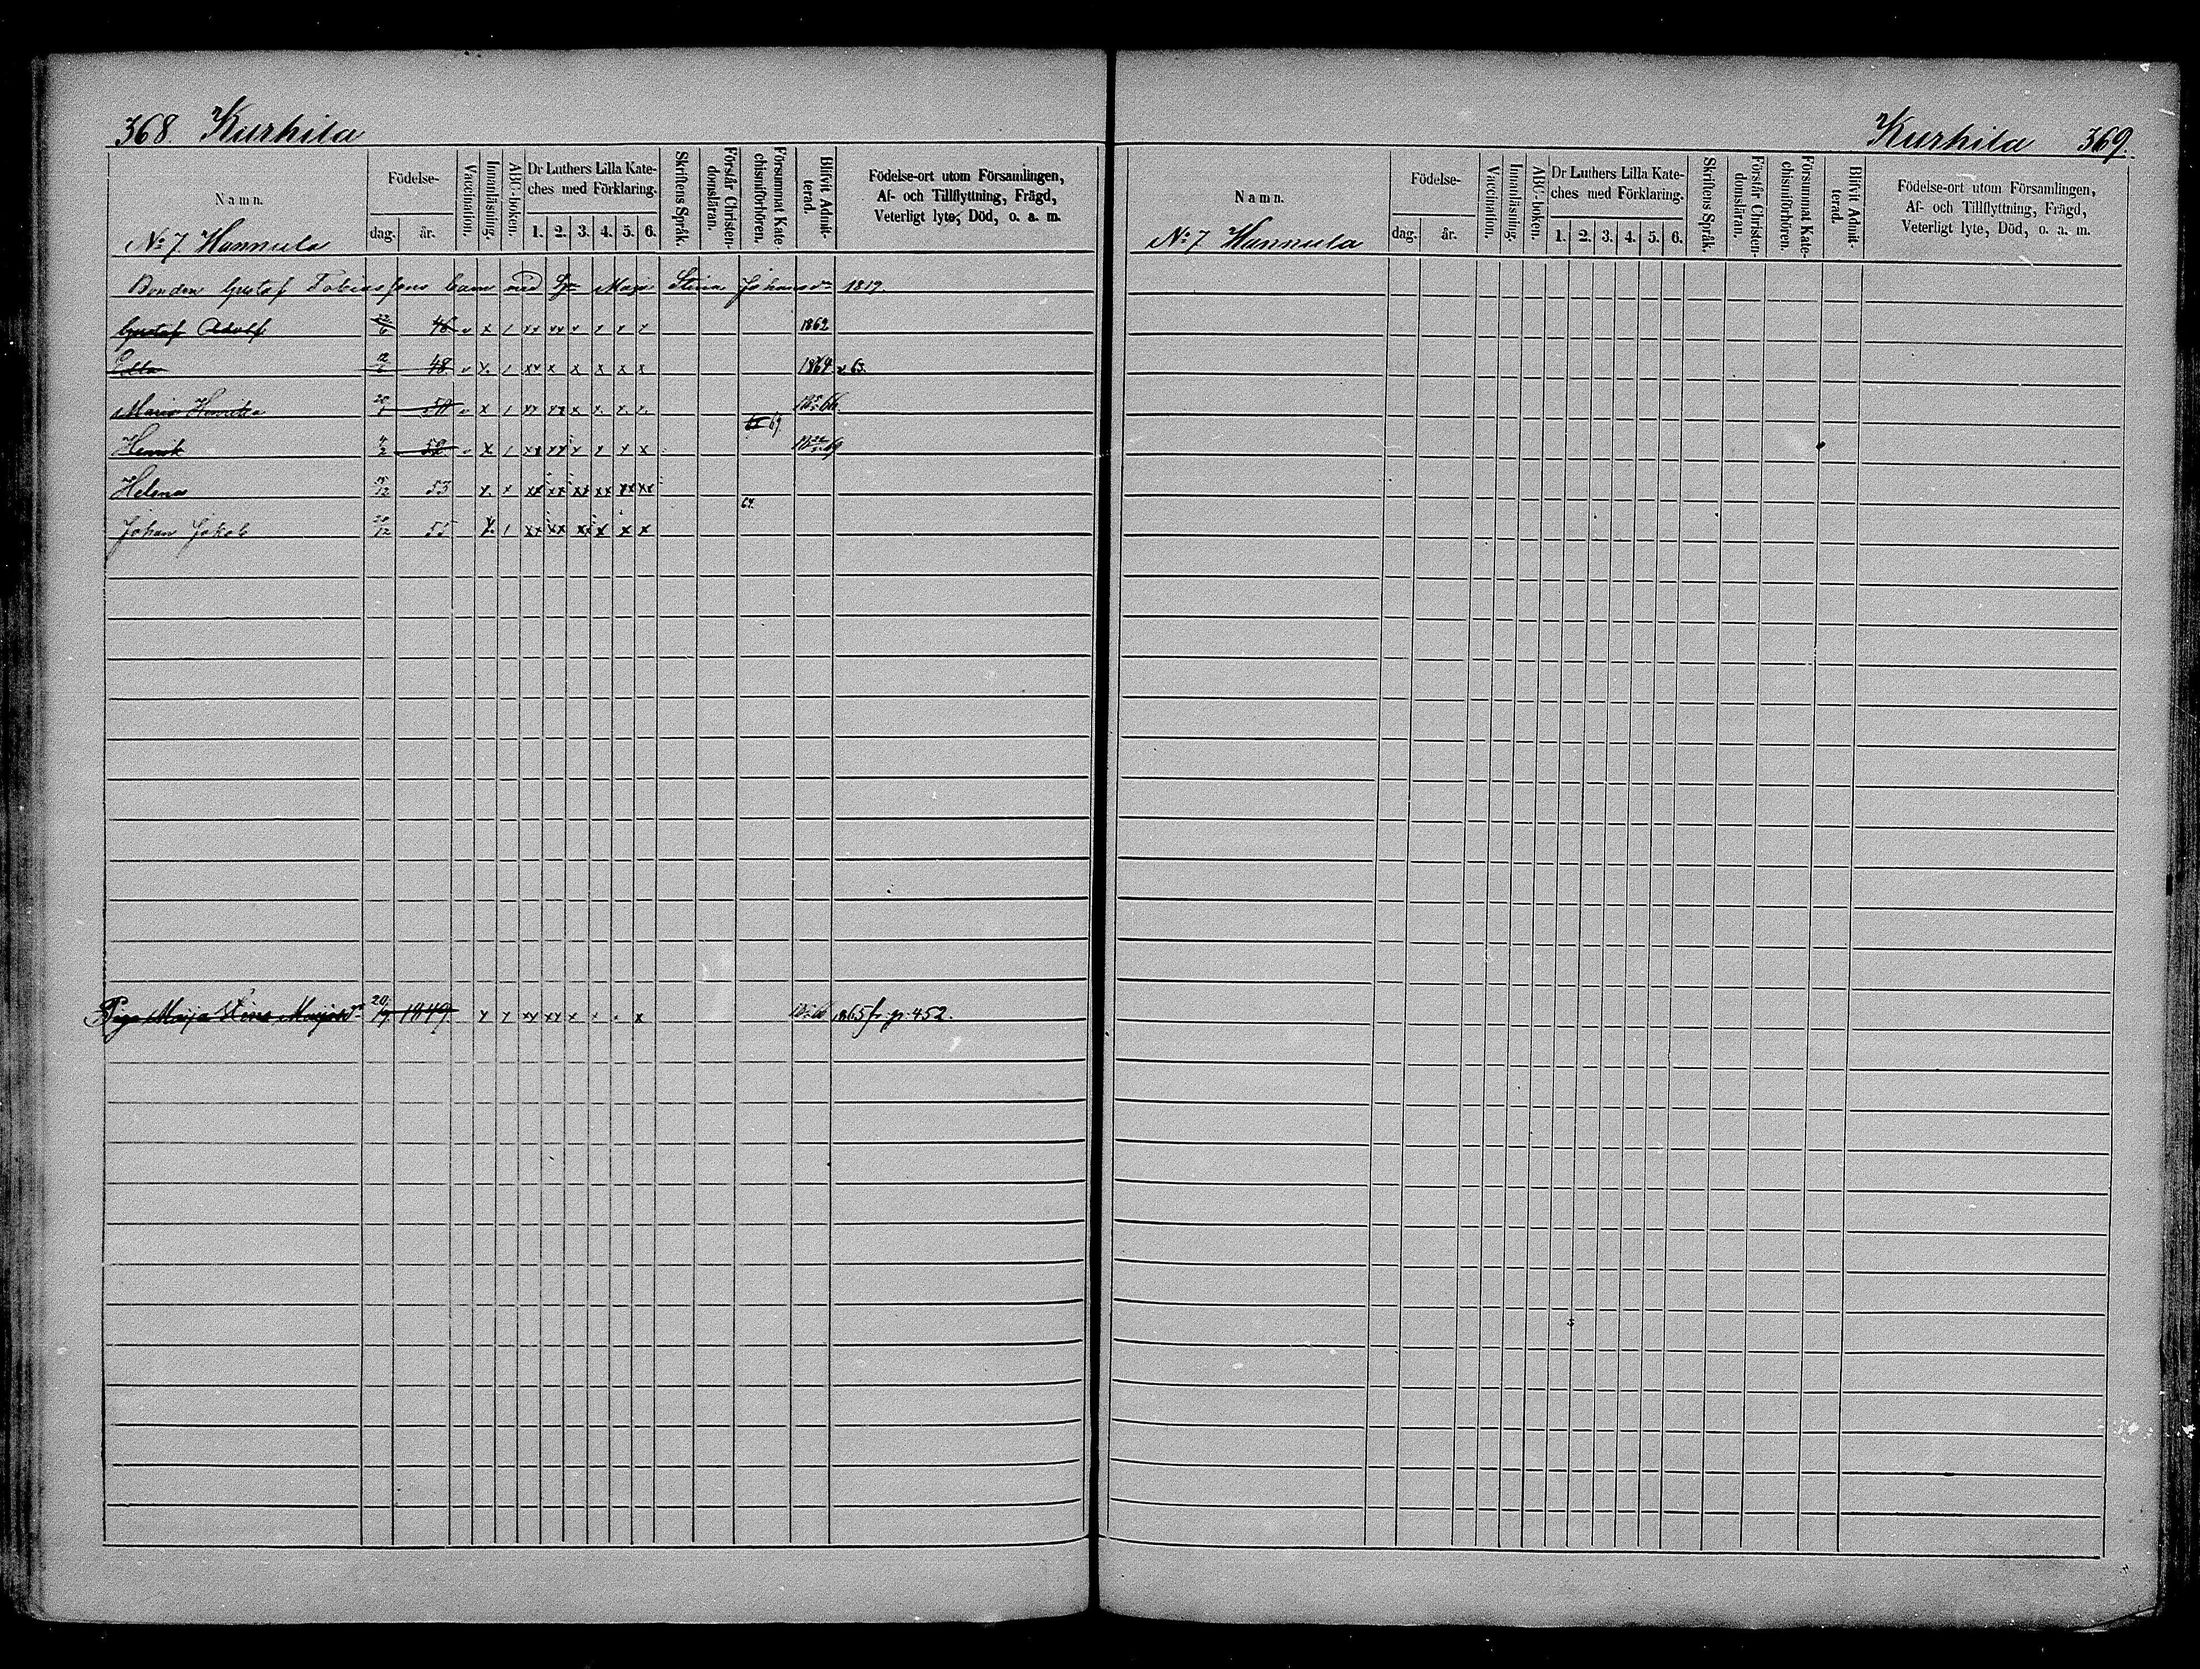 368. Kurhila
Namn. Födelse- dag. år. Vaccination. Innanläsning. ABC-boken. Dr Luthers Lilla Kateches med Förklaring. 1. 2. 3. 4. 5. 6. Skriftens Språk. Förstår Christendomsläran. Försummat Katechismiförhören. Blifvit Admitterad. Födelse-ort utom Församlingen, Af- och Tillflyttning, Frägd, Veterligt lyte, Död, o. a. m.
No 7 Hannula
Bonden Gustaf Tobiassons barn med Maja Stina Johansdr 1819.
Gustaf Adolf 22/6 46 v x / xx xx v x x x 1862
Ulla 12/6 48 v x / xx x x x x x 1864 v. 63.
Maria Henrika 20/1 50 v x / xx xx x x x x 66
Henrik 4/2 52 v x / xx xx v x x x 69 69
Helena 12 53 x x xx xx xx xx xx xx
64.
Johan Jakob 20/12 55 x / xx xx xx x x x
Piga Maja Stina Maijasdr 20/9 1849 x / xx xx x x 1865 fr. p. 452.
Kurhila 369.
Namn. Födelse- dag. år. Vaccination. Innanläsning. ABC-boken. Dr Luthers Lilla Kateches med Förklaring. 1. 2. 3. 4. 5. 6. Skriftens Språk. Förstår Christendomsläran. Försummat Katechismiförhören. Blifvit Admitterad. Födelse-ort utom Församlingen, Af- och Tillflyttning, Frägd, Veterligt lyte, Död, o. a. m.
No 7 Hannula